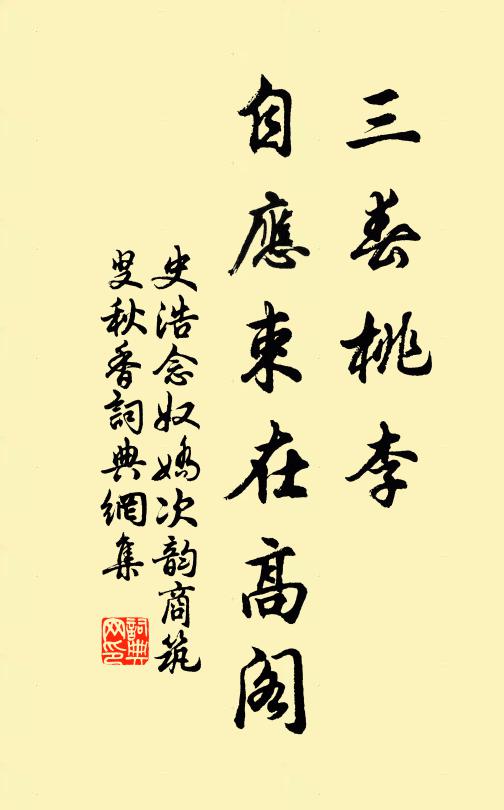 三春桃李
自應束在高閣
史浩念奴嬌次韵商筑
叟秋香詞典網集
詞典
网印